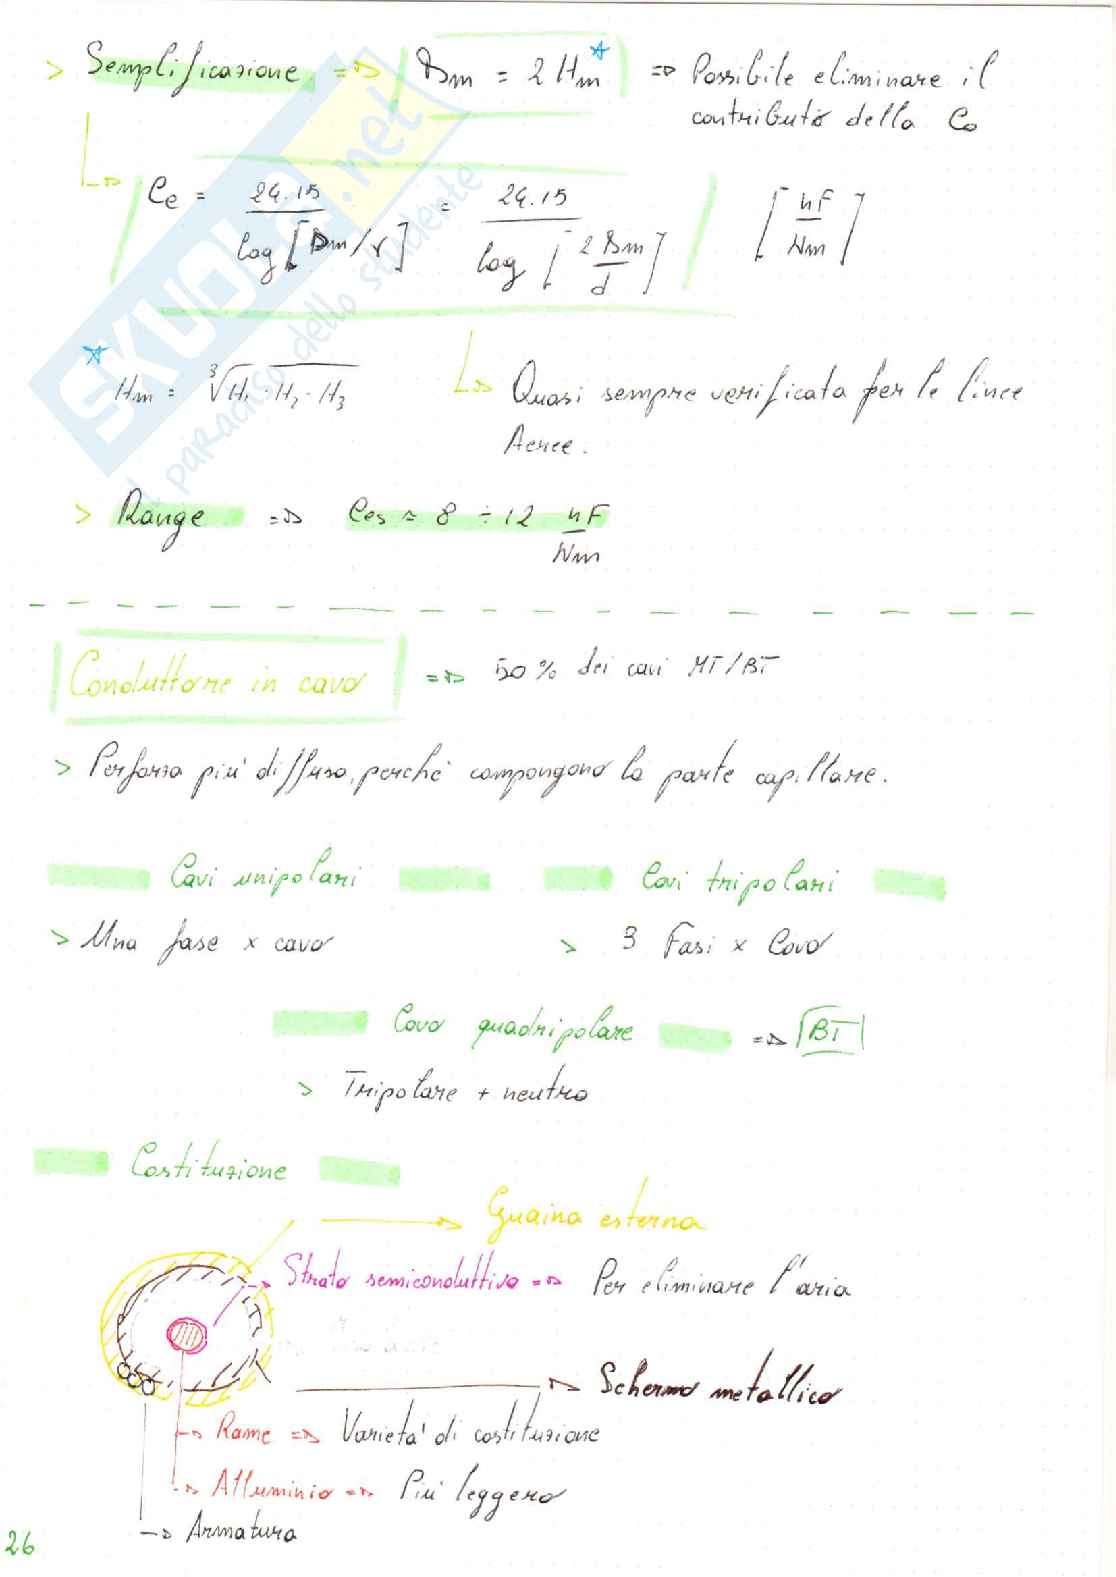 > Semplificazione => Dm = 2 Hm* => Possibile eliminare il
contributo della Co
Ce = 24.15 / log [Dm/r] = 24.15 / log [2 Dm / d] [nF / Km]
* Hm = ³√H1 · H2 · H3
Quasi sempre verificata per le linee
Aeree.
> Range => Ces ≈ 8 ÷ 12 nF / Km
Conduttore in cavo => 50% dei cavi MT/BT
> Per forza più diffuso, perché compongono la parte capillare.
Cavi unipolari Cavi tripolari
> Una fase x cavo > 3 Fasi x Cavo
Cavo quadripolare => BT
> Tripolare + neutro
Costituzione
Guaina esterna
Strato semiconduttivo => Per eliminare l'aria
Schermo metallico
Rame => Varietà di costituzione
Alluminio => Più leggero
Armatura
26
SKUOLA.net
il paradiso dello studente